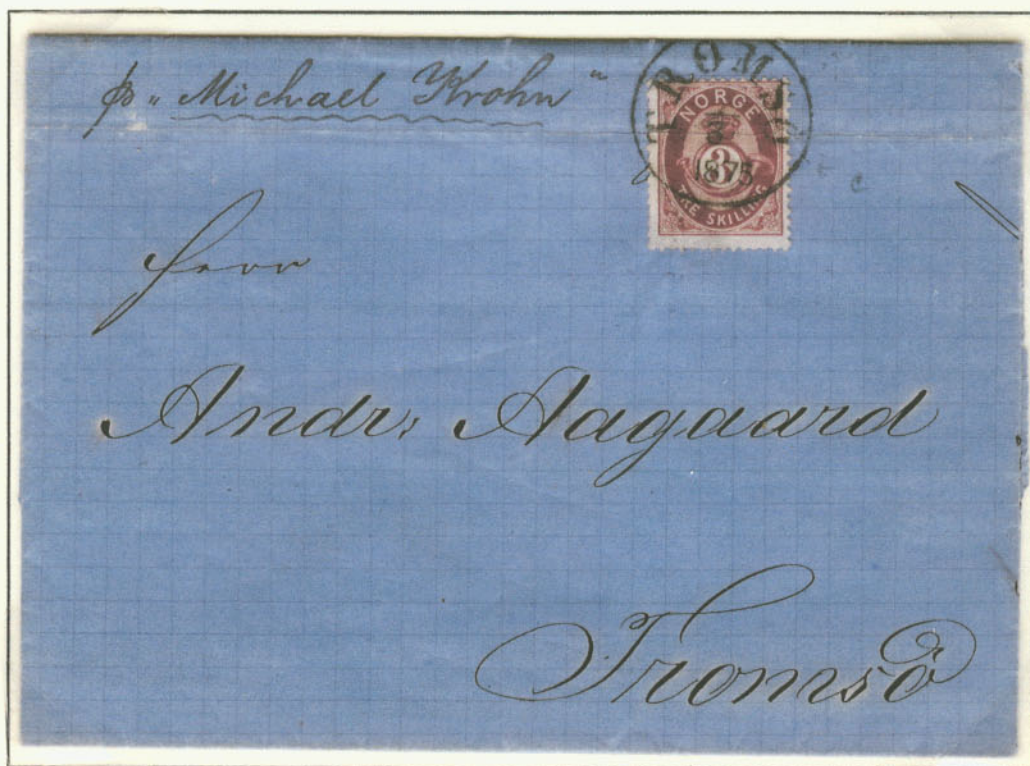 pr "Michael Krohn"
TROMSØ
1875
NORGE
3
TRE SKILLING
Herr
Andr: Aagaard
Tromsö